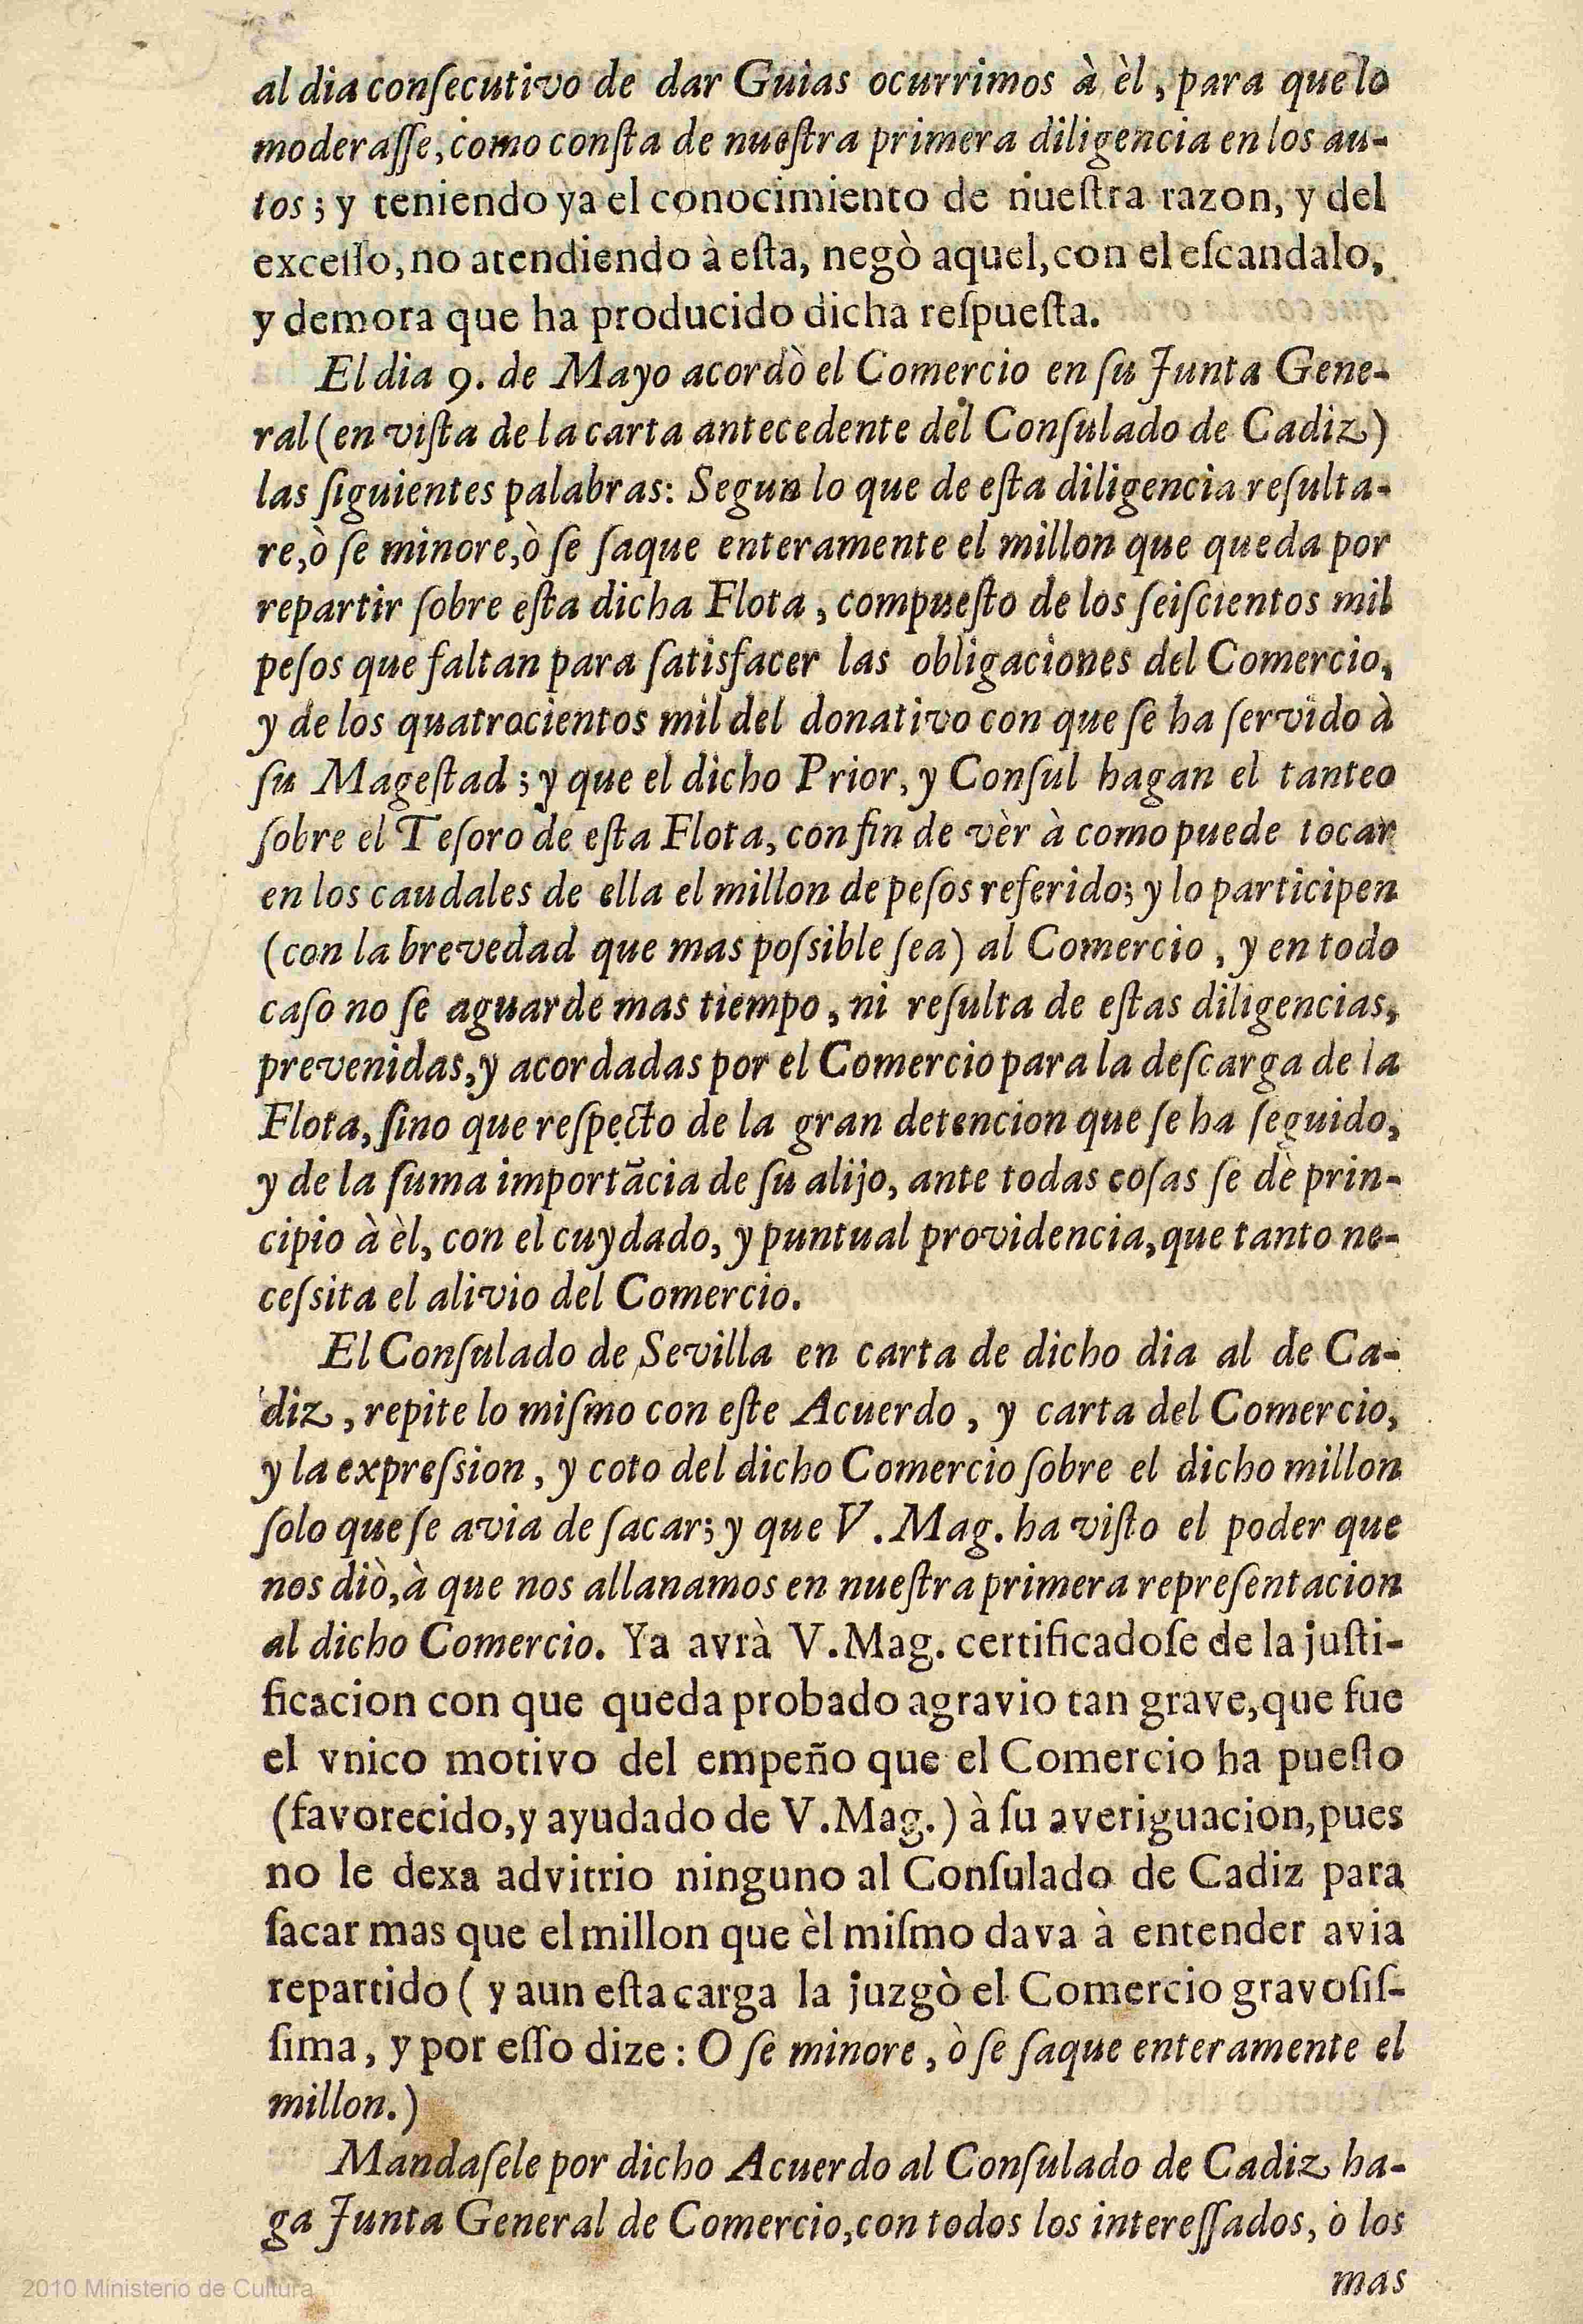 al dia conſecutivo de dar Guias ocurrimos à èl, para que lo
moderaſſe, como conſta de nueſtra primera diligencia en los au-
tos; y teniendo ya el conocimiento de nueſtra razon, y del
exceſſo, no atendiendo à eſta, negò aquel, con el eſcandalo,
y demora que ha producido dicha reſpueſta.
El dia 9. de Mayo acordò el Comercio en ſu Junta Gene-
ral (en viſta de la carta antecedente del Conſulado de Cadiz)
las ſiguientes palabras: Segun lo que de eſta diligencia reſulta-
re, ò ſe minore, ò ſe ſaque enteramente el millon que queda por
repartir ſobre eſta dicha Flota, compueſto de los ſeiſcientos mil
peſos que faltan para ſatisfacer las obligaciones del Comercio,
y de los quatrocientos mil del donativo con que ſe ha ſervido à
ſu Mageſtad; y que el dicho Prior, y Conſul hagan el tanteo
ſobre el Teſoro de eſta Flota, con fin de vèr à como puede tocar
en los caudales de ella el millon de peſos referido; y lo participen
(con la brevedad que mas poſsible ſea) al Comercio, y en todo
caſo no ſe aguarde mas tiempo, ni reſulta de eſtas diligencias,
prevenidas, y acordadas por el Comercio para la deſcarga de la
Flota, ſino que reſpecto de la gran detencion que ſe ha ſeguido,
y de la ſuma importãcia de ſu alijo, ante todas coſas ſe dè prin-
cipio à èl, con el cuydado, y puntual providencia, que tanto ne-
ceſsita el alivio del Comercio.
El Conſulado de Sevilla en carta de dicho dia al de Ca-
diz, repite lo miſmo con eſte Acuerdo, y carta del Comercio,
y la expreſsion, y coto del dicho Comercio ſobre el dicho millon
ſolo que ſe avia de ſacar; y que V. Mag. ha viſto el poder que
nos diò, à que nos allanamos en nueſtra primera repreſentacion
al dicho Comercio. Ya avrà V. Mag. certificadoſe de la juſti-
ficacion con que queda probado agravio tan grave, que fue
el vnico motivo del empeño que el Comercio ha pueſto
(favorecido, y ayudado de V. Mag.) à ſu averiguacion, pues
no le dexa advitrio ninguno al Conſulado de Cadiz para
ſacar mas que el millon que èl miſmo dava à entender avia
repartido ( y aun eſta carga la juzgò el Comercio gravoſiſ-
ſima, y por eſſo dize: O ſe minore, ò ſe ſaque enteramente el
millon.)
Mandaſele por dicho Acuerdo al Conſulado de Cadiz ha-
ga Junta General de Comercio, con todos los intereſſados, ò los
mas
2010 Ministerio de Cultura